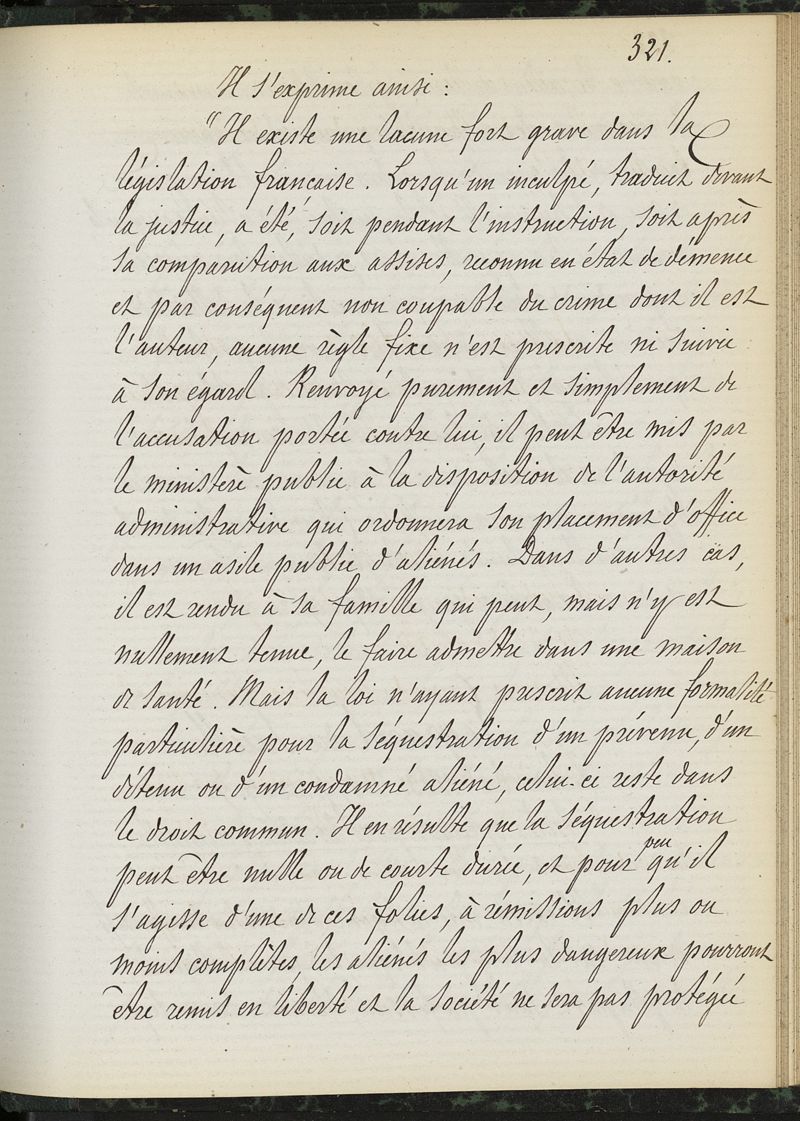 321.
Il s'exprime ainsi :
"Il existe une lacune fort grave dans la
législation française. Lorsqu'un inculpé, traduit devant
la justice, a été, soit pendant l'instruction, soit après
sa comparution aux assises, reconnu en état de démence
et par conséquent non coupable du crime dont il est
l'auteur, aucune règle fixe n'est prescrite ni suivie
à son égard. Renvoyé purement et simplement de
l'accusation portée contre lui, il peut être mis par
le ministère public à la disposition de l'autorité
administrative qui ordonnera son placement d'office
dans un asile public d'aliénés. Dans d'autres cas,
il est rendu à sa famille qui peut, mais n'y est
nullement tenue, le faire admettre dans une maison
de santé. Mais la loi n'ayant prescrit aucune formalité
particulière pour la séquestration d'un prévenu, d'un
détenu ou d'un condamné aliéné, celui-ci reste dans
le droit commun. Il en résulte que la séquestration
peut être nulle ou de courte durée, et pour peu qu'il
s'agisse d'une de ces folies, à rémissions plus ou
moins complètes, les aliénés les plus dangereux pourront
être remis en liberté et la société ne sera pas protégée